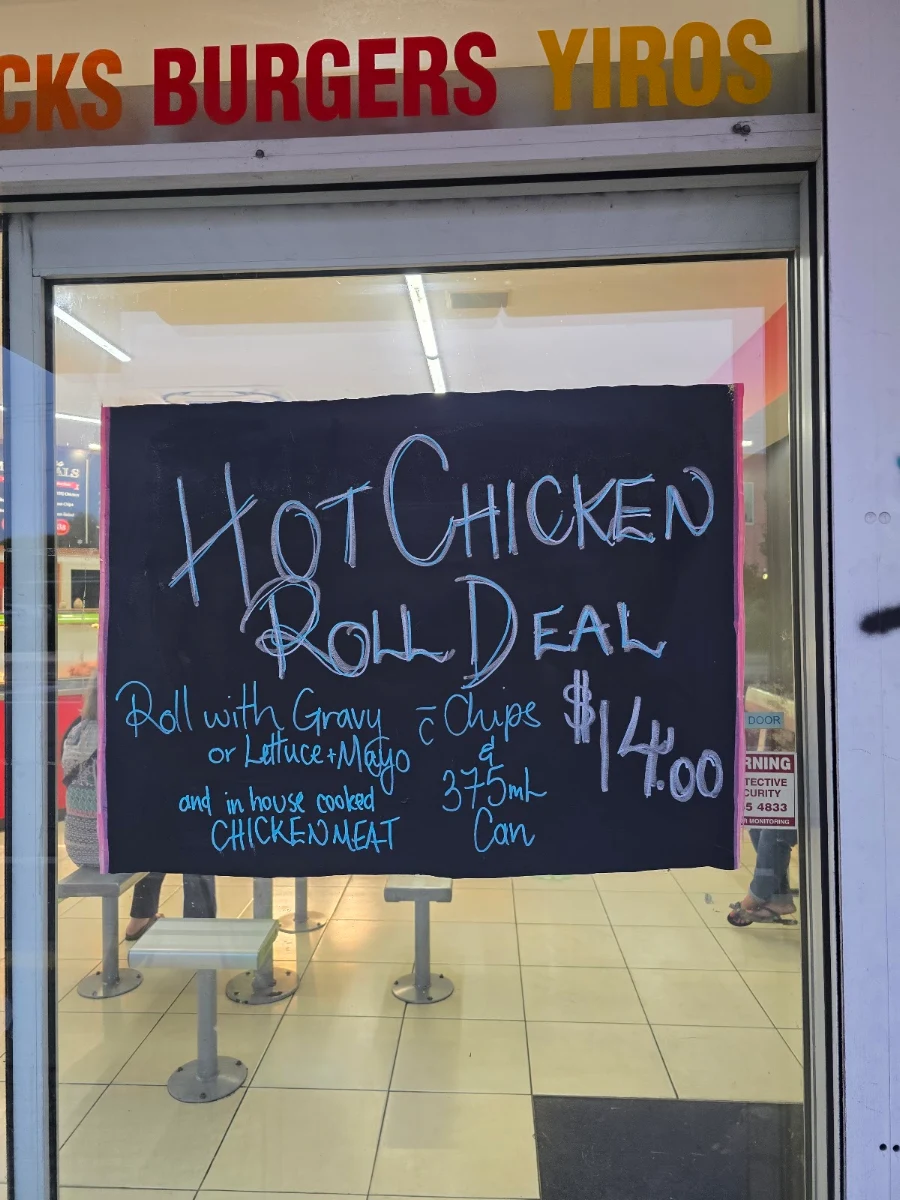 CKS BURGERS YIROS
HOT CHICKEN
ROLL DEAL
Roll with Gravy
or Lettuce + Mayo
and in house cooked
CHICKEN MEAT
c̄ Chips
&
375mL
Can
$14.00
ALS
DOOR
RNING
TECTIVE
CURITY
5 4833
R MONITORING